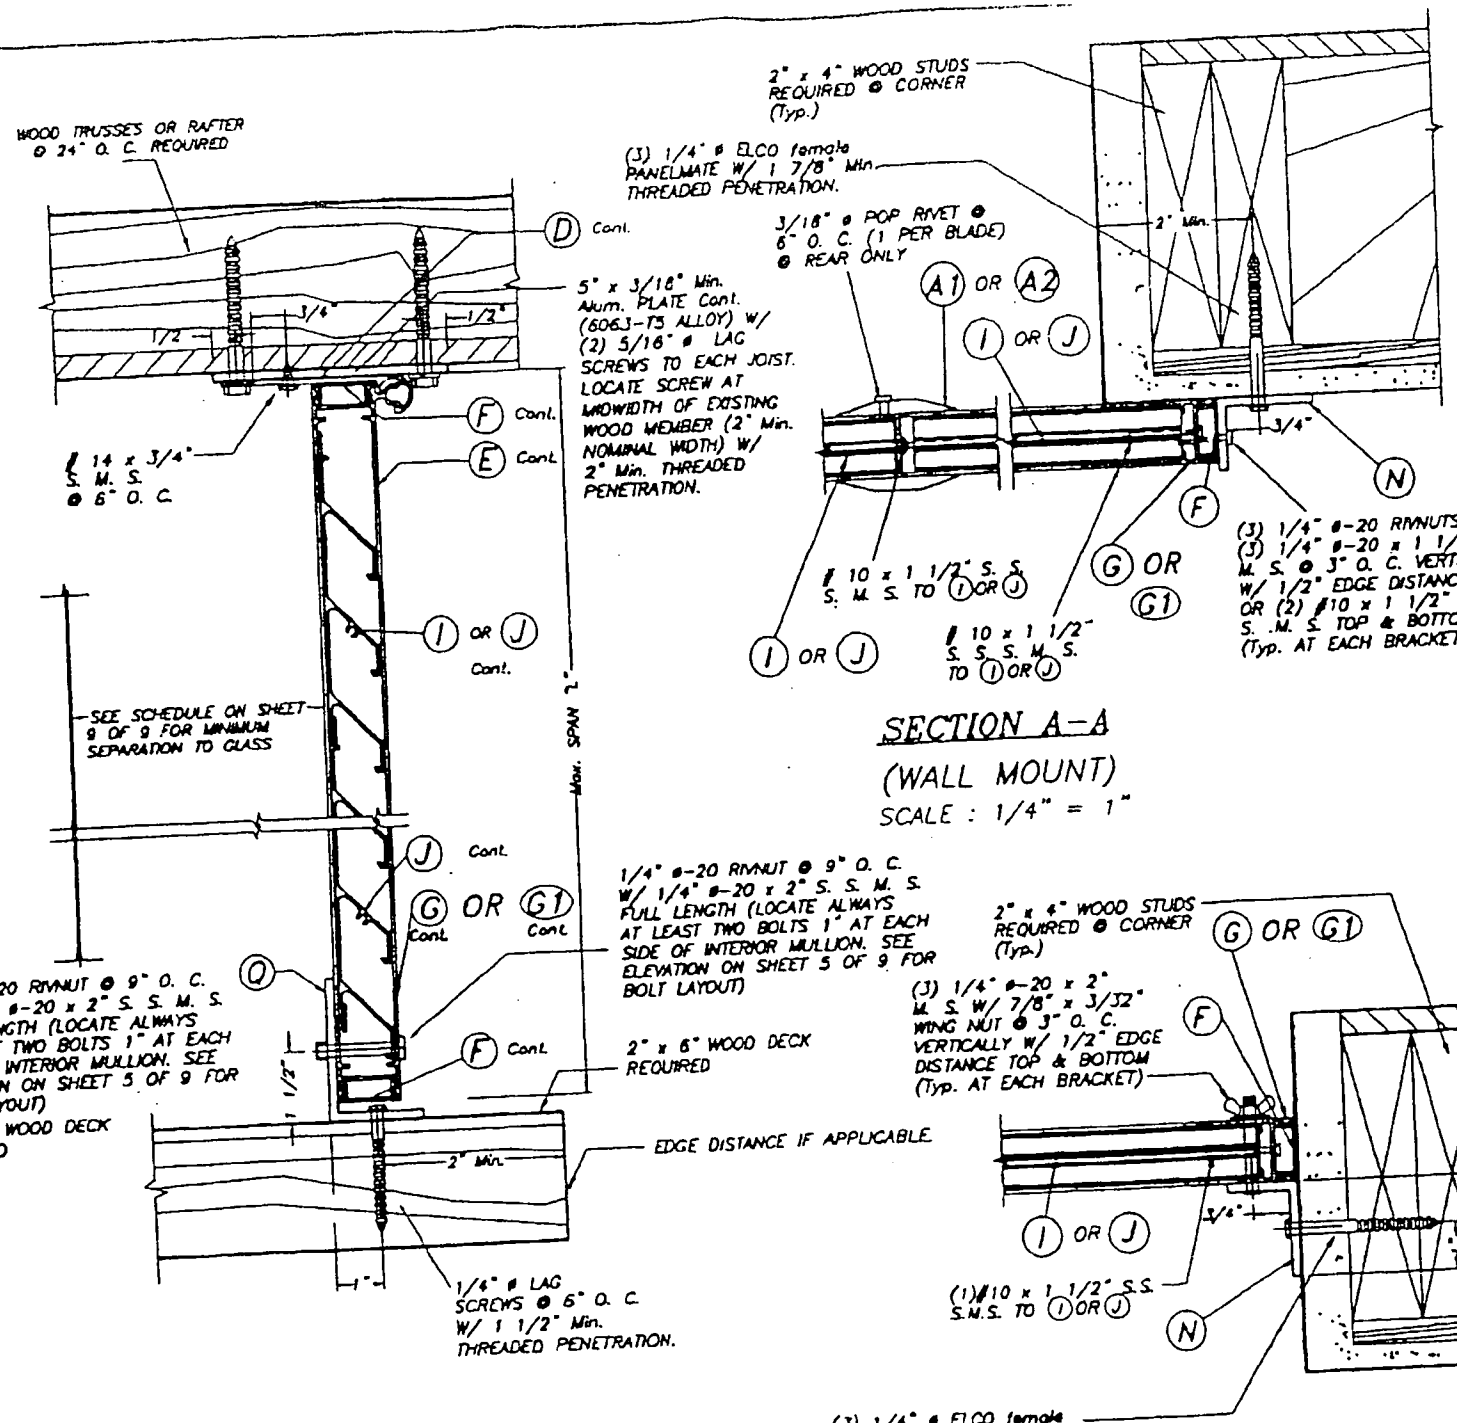 WOOD TRUSSES OR RAFTER
@ 24" O. C. REQUIRED
D Cont.
5" x 3/16" Min.
Alum. PLATE Cont.
(6063-T5 ALLOY) W/
(2) 5/16" ø LAG
SCREWS TO EACH JOIST.
LOCATE SCREW AT
MIDWIDTH OF EXISTING
WOOD MEMBER (2" Min.
NOMINAL WIDTH) W/
2" Min. THREADED
PENETRATION.
3/4"
1/2
1/2"
F Cont.
E Cont.
# 14 x 3/4"
S. M. S.
@ 6" O. C.
I OR J
Cont.
SEE SCHEDULE ON SHEET
9 OF 9 FOR MINIMUM
SEPARATION TO GLASS
Max. SPAN "L"
J Cont.
G OR G1
Cont.
Cont.
Q
20 RIVNUT @ 9" O. C.
ø-20 x 2" S. S. M. S.
NGTH (LOCATE ALWAYS
T TWO BOLTS 1" AT EACH
INTERIOR MULLION. SEE
N ON SHEET 5 OF 9 FOR
YOUT)
WOOD DECK
D
1 1/2"
F Cont.
1/4" ø-20 RIVNUT @ 9" O. C.
W/ 1/4" ø-20 x 2" S. S. M. S.
FULL LENGTH (LOCATE ALWAYS
AT LEAST TWO BOLTS 1" AT EACH
SIDE OF INTERIOR MULLION. SEE
ELEVATION ON SHEET 5 OF 9 FOR
BOLT LAYOUT)
2" x 6" WOOD DECK
REQUIRED
EDGE DISTANCE IF APPLICABLE
2" Min
1"
1/4" ø LAG
SCREWS @ 6" O. C.
W/ 1 1/2" Min.
THREADED PENETRATION.
2" x 4" WOOD STUDS
REQUIRED @ CORNER
(Typ.)
(3) 1/4" ø ELCO female
PANELMATE W/ 1 7/8" Min.
THREADED PENETRATION.
3/16" ø POP RIVET @
6" O. C. (1 PER BLADE)
@ REAR ONLY
A1 OR A2
I OR J
2" Min.
3/4"
N
F
G OR
G1
# 10 x 1 1/2" S. S.
S. M. S. TO I OR J
I OR J
# 10 x 1 1/2"
S. S. S. M. S.
TO I OR J
(3) 1/4" ø-20 RIVNUTS
(3) 1/4" ø-20 x 1 1/
M. S. @ 3" O. C. VERT
W/ 1/2" EDGE DISTANC
OR (2) #10 x 1 1/2"
S. M. S. TOP & BOTTO
(Typ. AT EACH BRACKET
SECTION A-A
(WALL MOUNT)
SCALE : 1/4" = 1"
2" x 4" WOOD STUDS
REQUIRED @ CORNER
(Typ.)
G OR G1
(3) 1/4" ø-20 x 2"
M. S. W/ 7/8" x 3/32"
WING NUT @ 3" O. C.
VERTICALLY W/ 1/2" EDGE
DISTANCE TOP & BOTTOM
(Typ. AT EACH BRACKET)
F
3/4"
I OR J
(1)#10 x 1 1/2" S.S.
S.M.S. TO I OR J
N
(3) 1/4" ø ELCO female